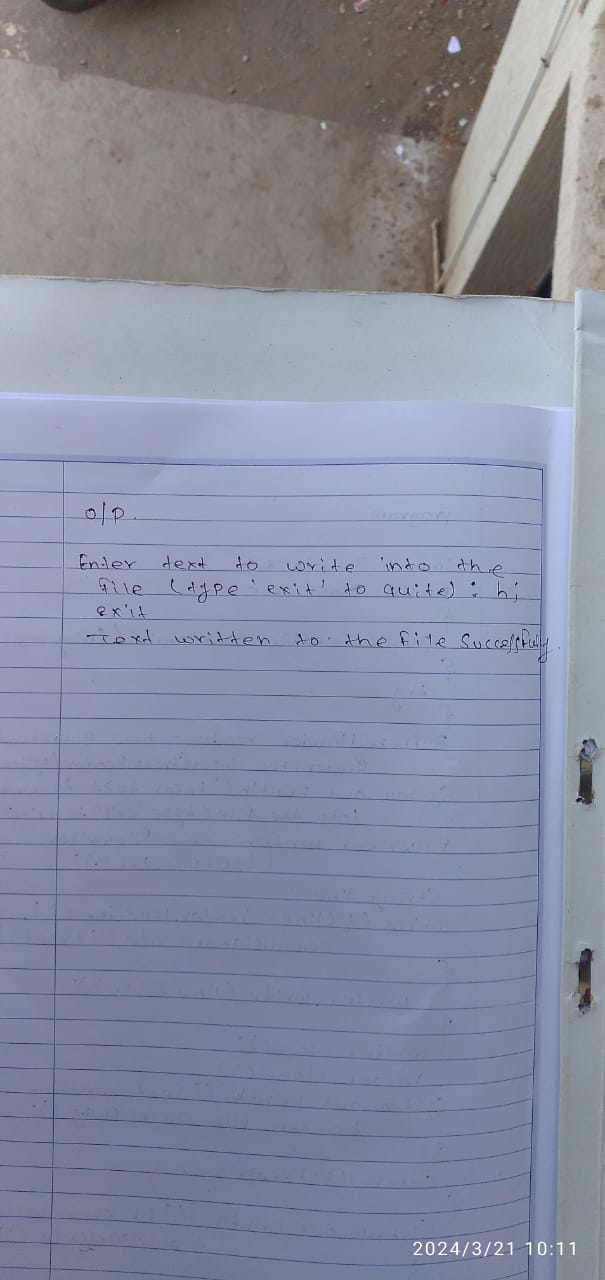 o/p.
Enter text to write into the
file (type 'exit' to quite) : hi
exit
Text written to the file Successfully
2024/3/21 10:11